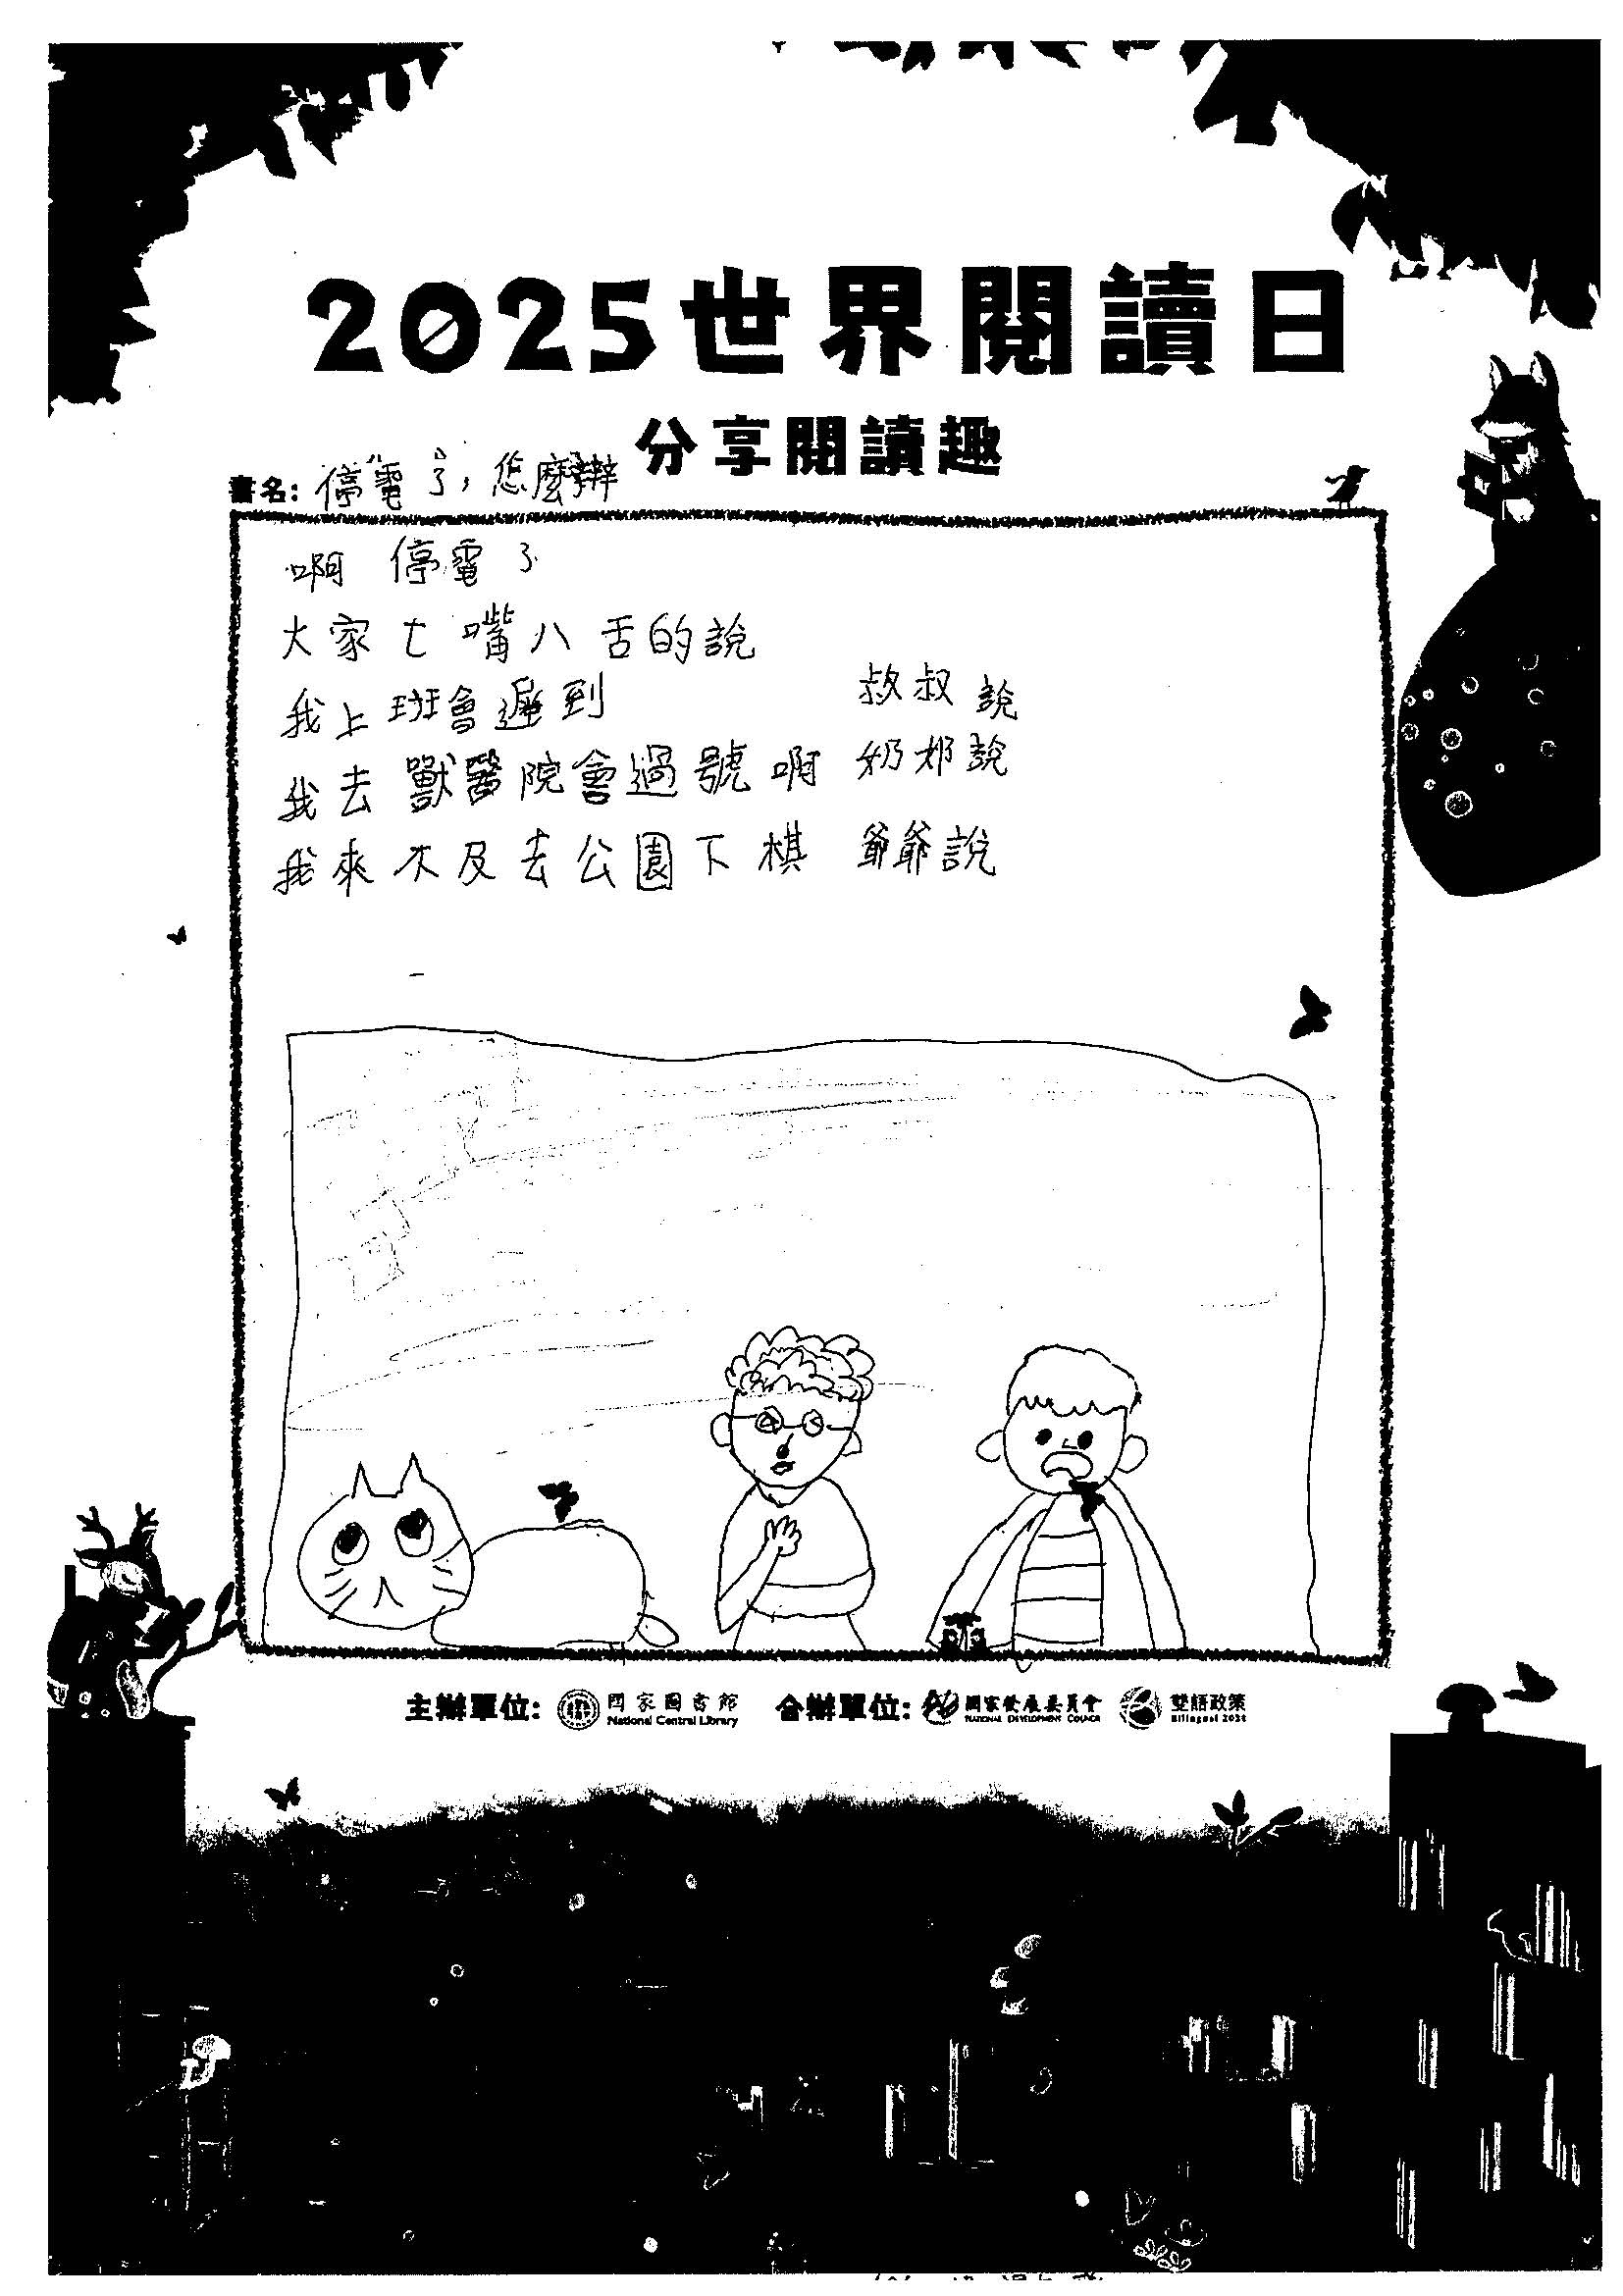 2025世界閱讀日
分享閱讀趣
書名: 停電了,怎麼辦
啊 停電了
大家七嘴八舌的說
我上班會遲到 叔叔說
我去獸醫院會過號啊 奶奶說
我來不及去公園下棋 爺爺說
主辦單位: 國家圖書館 National Central Library 合辦單位: 國家發展委員會 NATIONAL DEVELOPMENT COUNCIL 雙語政策 Bilingual 2030